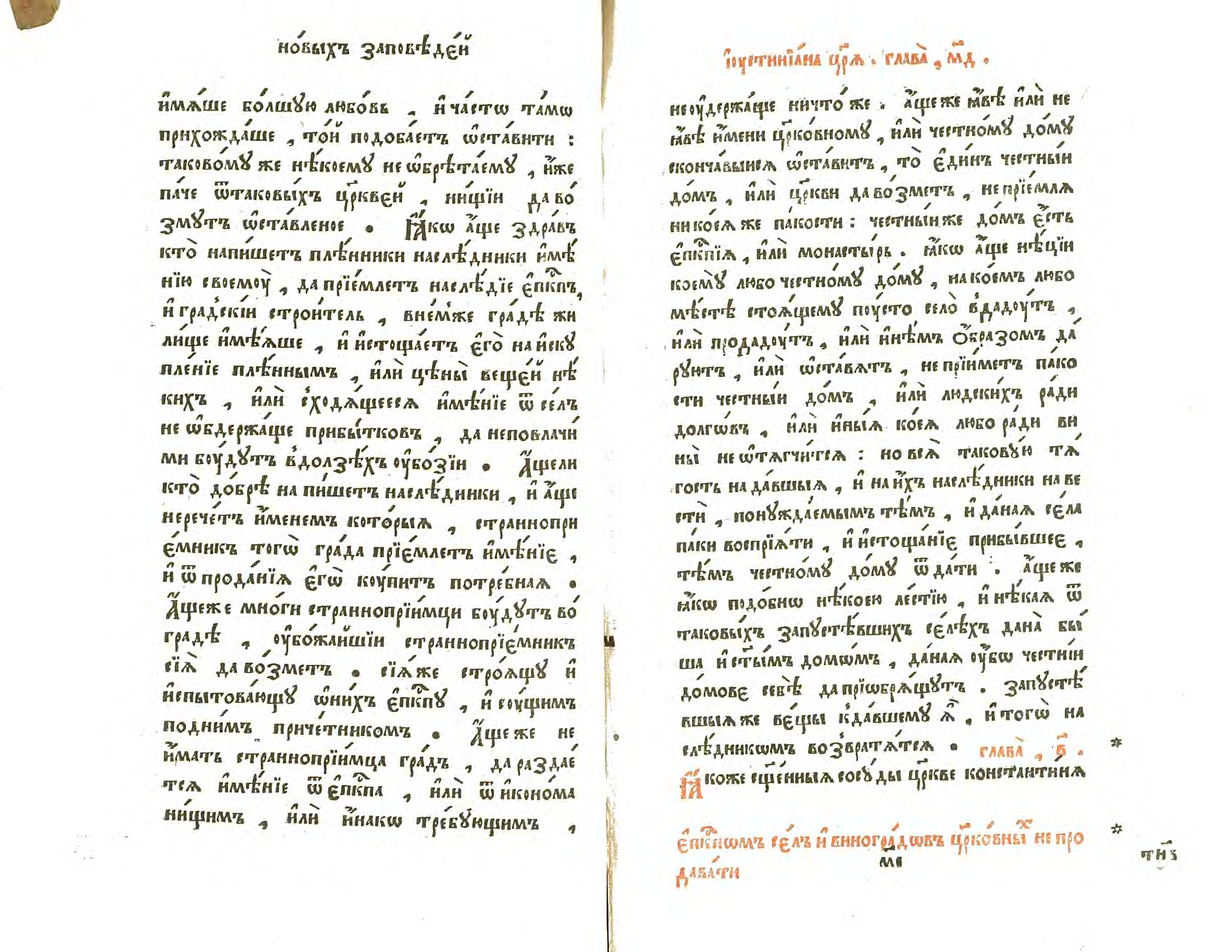 но́выхъ заповѣде́й
и҆мѧ́ше бо́лшую любо́вь , и҆ ча́стѡ та́мѡ
прихожда́ше , то́й подоба́етъ ѡ҆ста́вити :
таково́мꙋ же нѣ́коемꙋ не ѡ҆брѣта́емꙋ , и҆́же
па́че ѿ таковы́хъ цр҃кве́й , ни́щїи да во́
змꙋтъ ѡ҆ставле́ное . Ꙗ҆́кѡ а҆́ще здра́въ
кто̀ напи́шетъ плѣ́нники наслѣ́дники и҆мѣ́
нїю своемоу̀ , да прїе́млетъ наслѣ́дїе є҆пⷭ҇кпъ,
и҆ гра́дскїи строи́тель , в не́мже гра́дѣ жи
ли́ще и҆мѣ́ѧше , и҆ и҆стоща́етъ є҆го̀ на и҆скꙋ
пле́нїе плѣ́ннымъ , и҆лѝ цѣ́ны веще́й нѣ́
кихъ , и҆лѝ с̾ходѧ́щеесѧ и҆мѣ́нїе ѿ се́лъ
не ѡ҆бдержа́ще прибы́тковъ , да неповлачи́
ми боу́дꙋтъ в̾долзѣ́хъ оу҆бо́зїи . А҆́щели
кто̀ до́брѣ на пи́шетъ наслѣ́дники , и҆ а҆́ще
нерече́тъ и҆́менемъ кото́рыѧ , страннопри
є́мникъ тогѡ̀ гра́да прїе́млетъ и҆мѣ́нїе ,
и҆ ѿ прода́нїѧ є҆гѡ̀ коу́питъ потре́бнаѧ .
А҆́щеже мно́ги страннопрїи́мци боу́дꙋтъ во́
гра́дѣ , оу҆бо́жайшїи страннопрїе́мникъ
сїѧ̀ да во́зметъ . сїѧ́же строѧ́щꙋ и҆
и҆спытова́ющꙋ ѡ҆ни́хъ є҆пⷭ҇кпꙋ , и҆ соу́щимъ
под ни́мъ приче́тникомъ . А҆́ще же не
и҆́мать страннопрїи́мца гра́дъ , да разда́е
тсѧ и҆мѣ́нїе ѿ є҆пⷭ҇кпа , и҆лѝ ѿ и҆конома
ни́щимъ , и҆лѝ и҆́накѡ тре́бꙋющимъ ,
І҆оустинїа́на цр҃ѧ̀ . глава̀ , м҃д .
не оу҆держа́ще ничто́же . А҆́ще же ꙗ҆́вѣ и҆лѝ не
ꙗ҆́вѣ и҆́мени цр҃ко́вномꙋ , и҆лѝ честно́мꙋ до́мꙋ
сконча́выисѧ ѡ҆ста́витъ , то̀ є҆ди́нъ честны́и
до́мъ , и҆лѝ цр҃кви да во́зметъ , не прїе́млѧ
ни коеѧ́ же па́кости : честны́и же до́мъ є҆́сть
є҆пⷭ҇кпїѧ , и҆лѝ монасты́рь . ꙗ҆́кѡ а҆́ще нѣ́цїи
коемꙋ̀ любо честно́мꙋ до́мꙋ , на ко́емъ любо
мѣ́стѣ стоѧ́щемꙋ поу́сто село̀ в̾дадоу́тъ ,
и҆лѝ продадоу́тъ , и҆лѝ и҆нѣ́мъ о҆́бразомъ да́
рꙋютъ , и҆лѝ ѡ҆ста́вѧтъ , не прїи́метъ па́ко
сти честны́и до́мъ , и҆лѝ людски́хъ ра́ди
долгѡ́въ , и҆лѝ и҆ны́ѧ коеѧ̀ любо ра́ди ви
ны̀ не ѡ҆тѧгчи́тсѧ : но всѧ̀ такову́ю тѧ́
гость на да́вшыѧ , и҆ на и҆́хъ наслѣ́дники наве
стѝ , понꙋжда́емымъ тѣ́мъ , и҆ да́наѧ се́ла
па́ки воспрїѧ́ти , и҆ и҆стоща́нїе прибы́вшее ,
тѣ́мъ честно́мꙋ до́мꙋ ѿ да́ти . А҆́ще же
ꙗ҆́кѡ подо́бнѡ нѣ́коею ле́стїю , и҆ нѣ́каѧ ѿ
таковы́хъ запꙋстѣ́вшихъ се́лѣхъ дана̀ бы́
ша и҆ ст҃ы́мъ домѡ́мъ , да́наѧ оу҆́бѡ честні́и
до́мове себѣ̀ да прїѡбрѧ́щꙋтъ . запꙋстѣ́
вшыѧ же ве́щы к̾да́вшемꙋ ѧ҆̀ , и҆ тогѡ̀ на
слѣ́дникѡмъ возвратѧ́тсѧ . глава̀ , в҃ . *
Ꙗ҆́коже сщ҃е́нныѧ сосоу́ды цр҃кве константи́нѧ
є҆пⷭ҇кпѡмъ се́лъ и҆ виногра́дѡвъ цр҃ко́вныⷯ не про *
дава́ти
м҃е
тн҃з